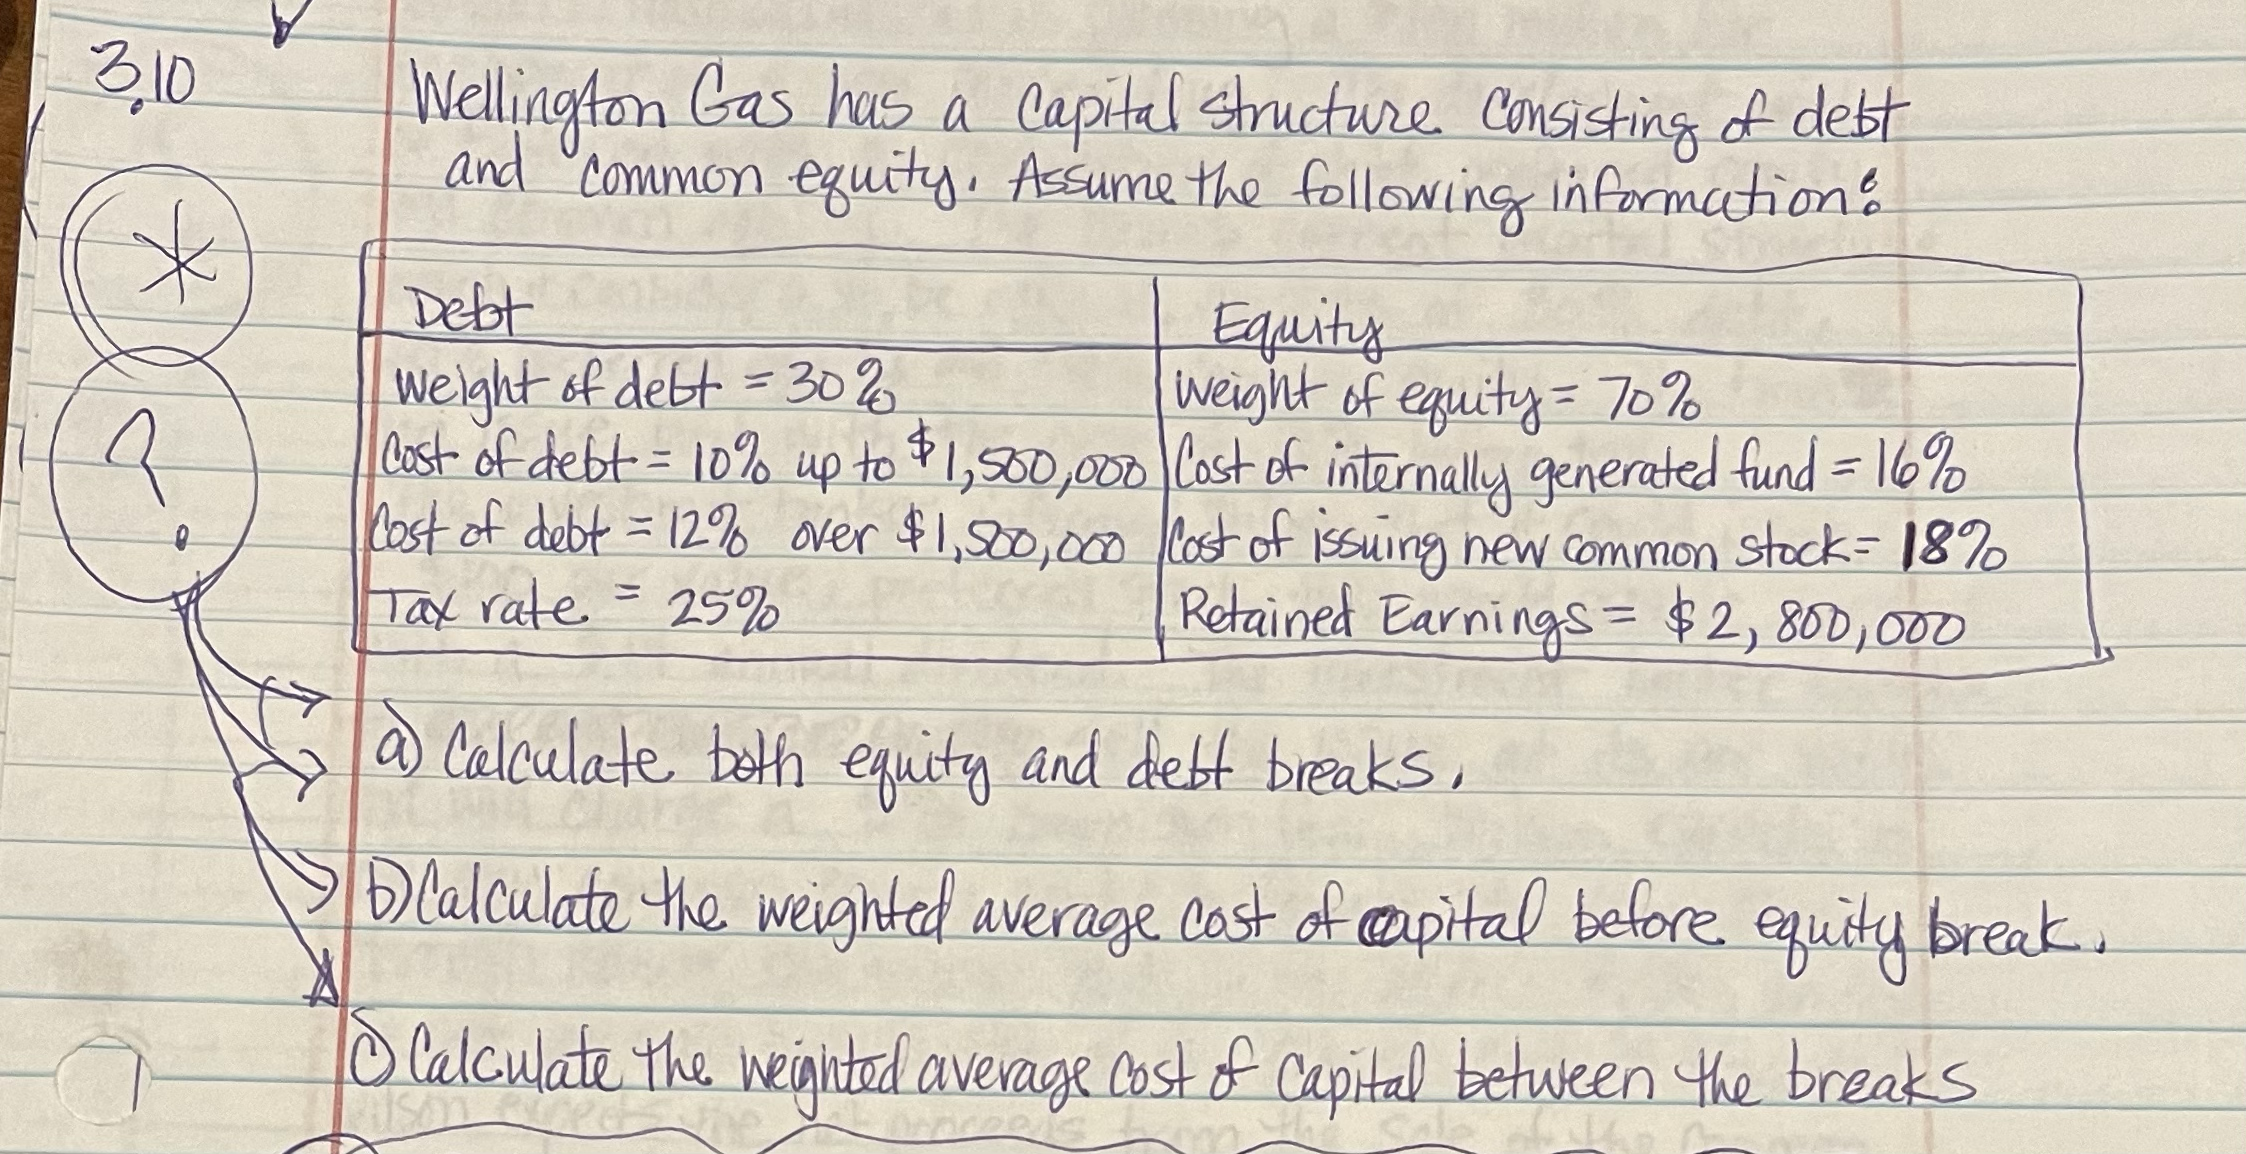 3.10
Wellington Gas has a Capital structure consisting of debt
and common equity. Assume the following information:
*
?
Debt
Equity
Weight of debt = 30%
Weight of equity = 70%
Cost of debt = 10% up to $1,500,000
Cost of internally generated fund = 16%
Cost of debt = 12% over $1,500,000
Cost of issuing new common stock = 18%
Tax rate = 25%
Retained Earnings = $2,800,000
a) Calculate both equity and debt breaks.
b) Calculate the weighted average cost of capital before equity break.
c) Calculate the weighted average cost of Capital between the breaks